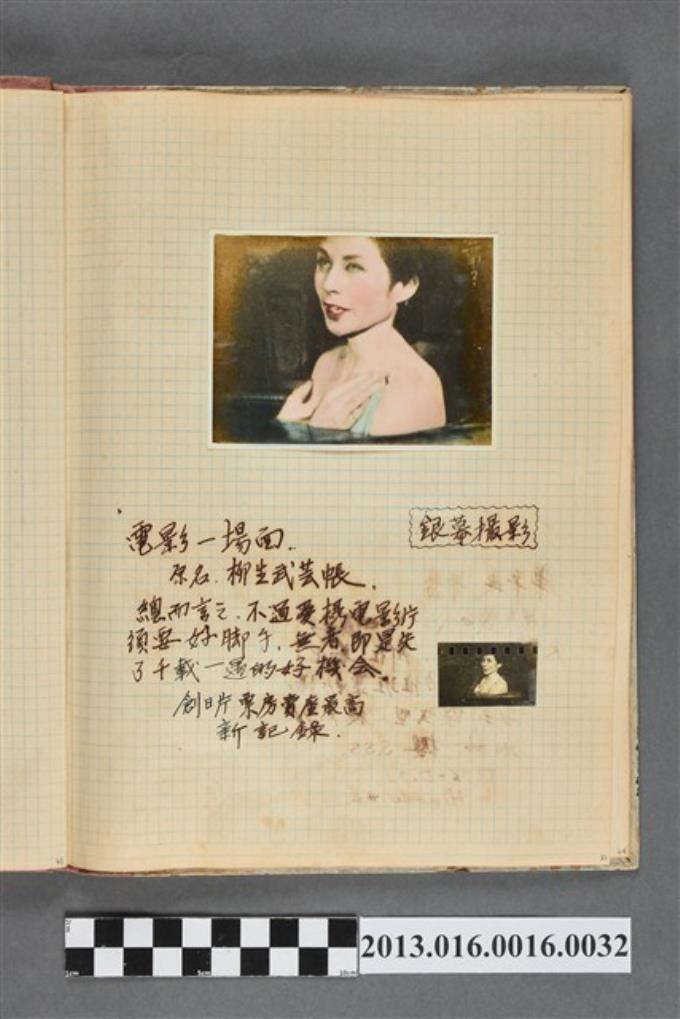 銀幕攝影
電影一場面.
原名.柳生武芸帳.
總而言之,不過愛攝電影片
須要好脚子,無者,即是失
了千載一遇的好機會.
創日片票房賣座最高
新記錄.
2013.016.0016.0032